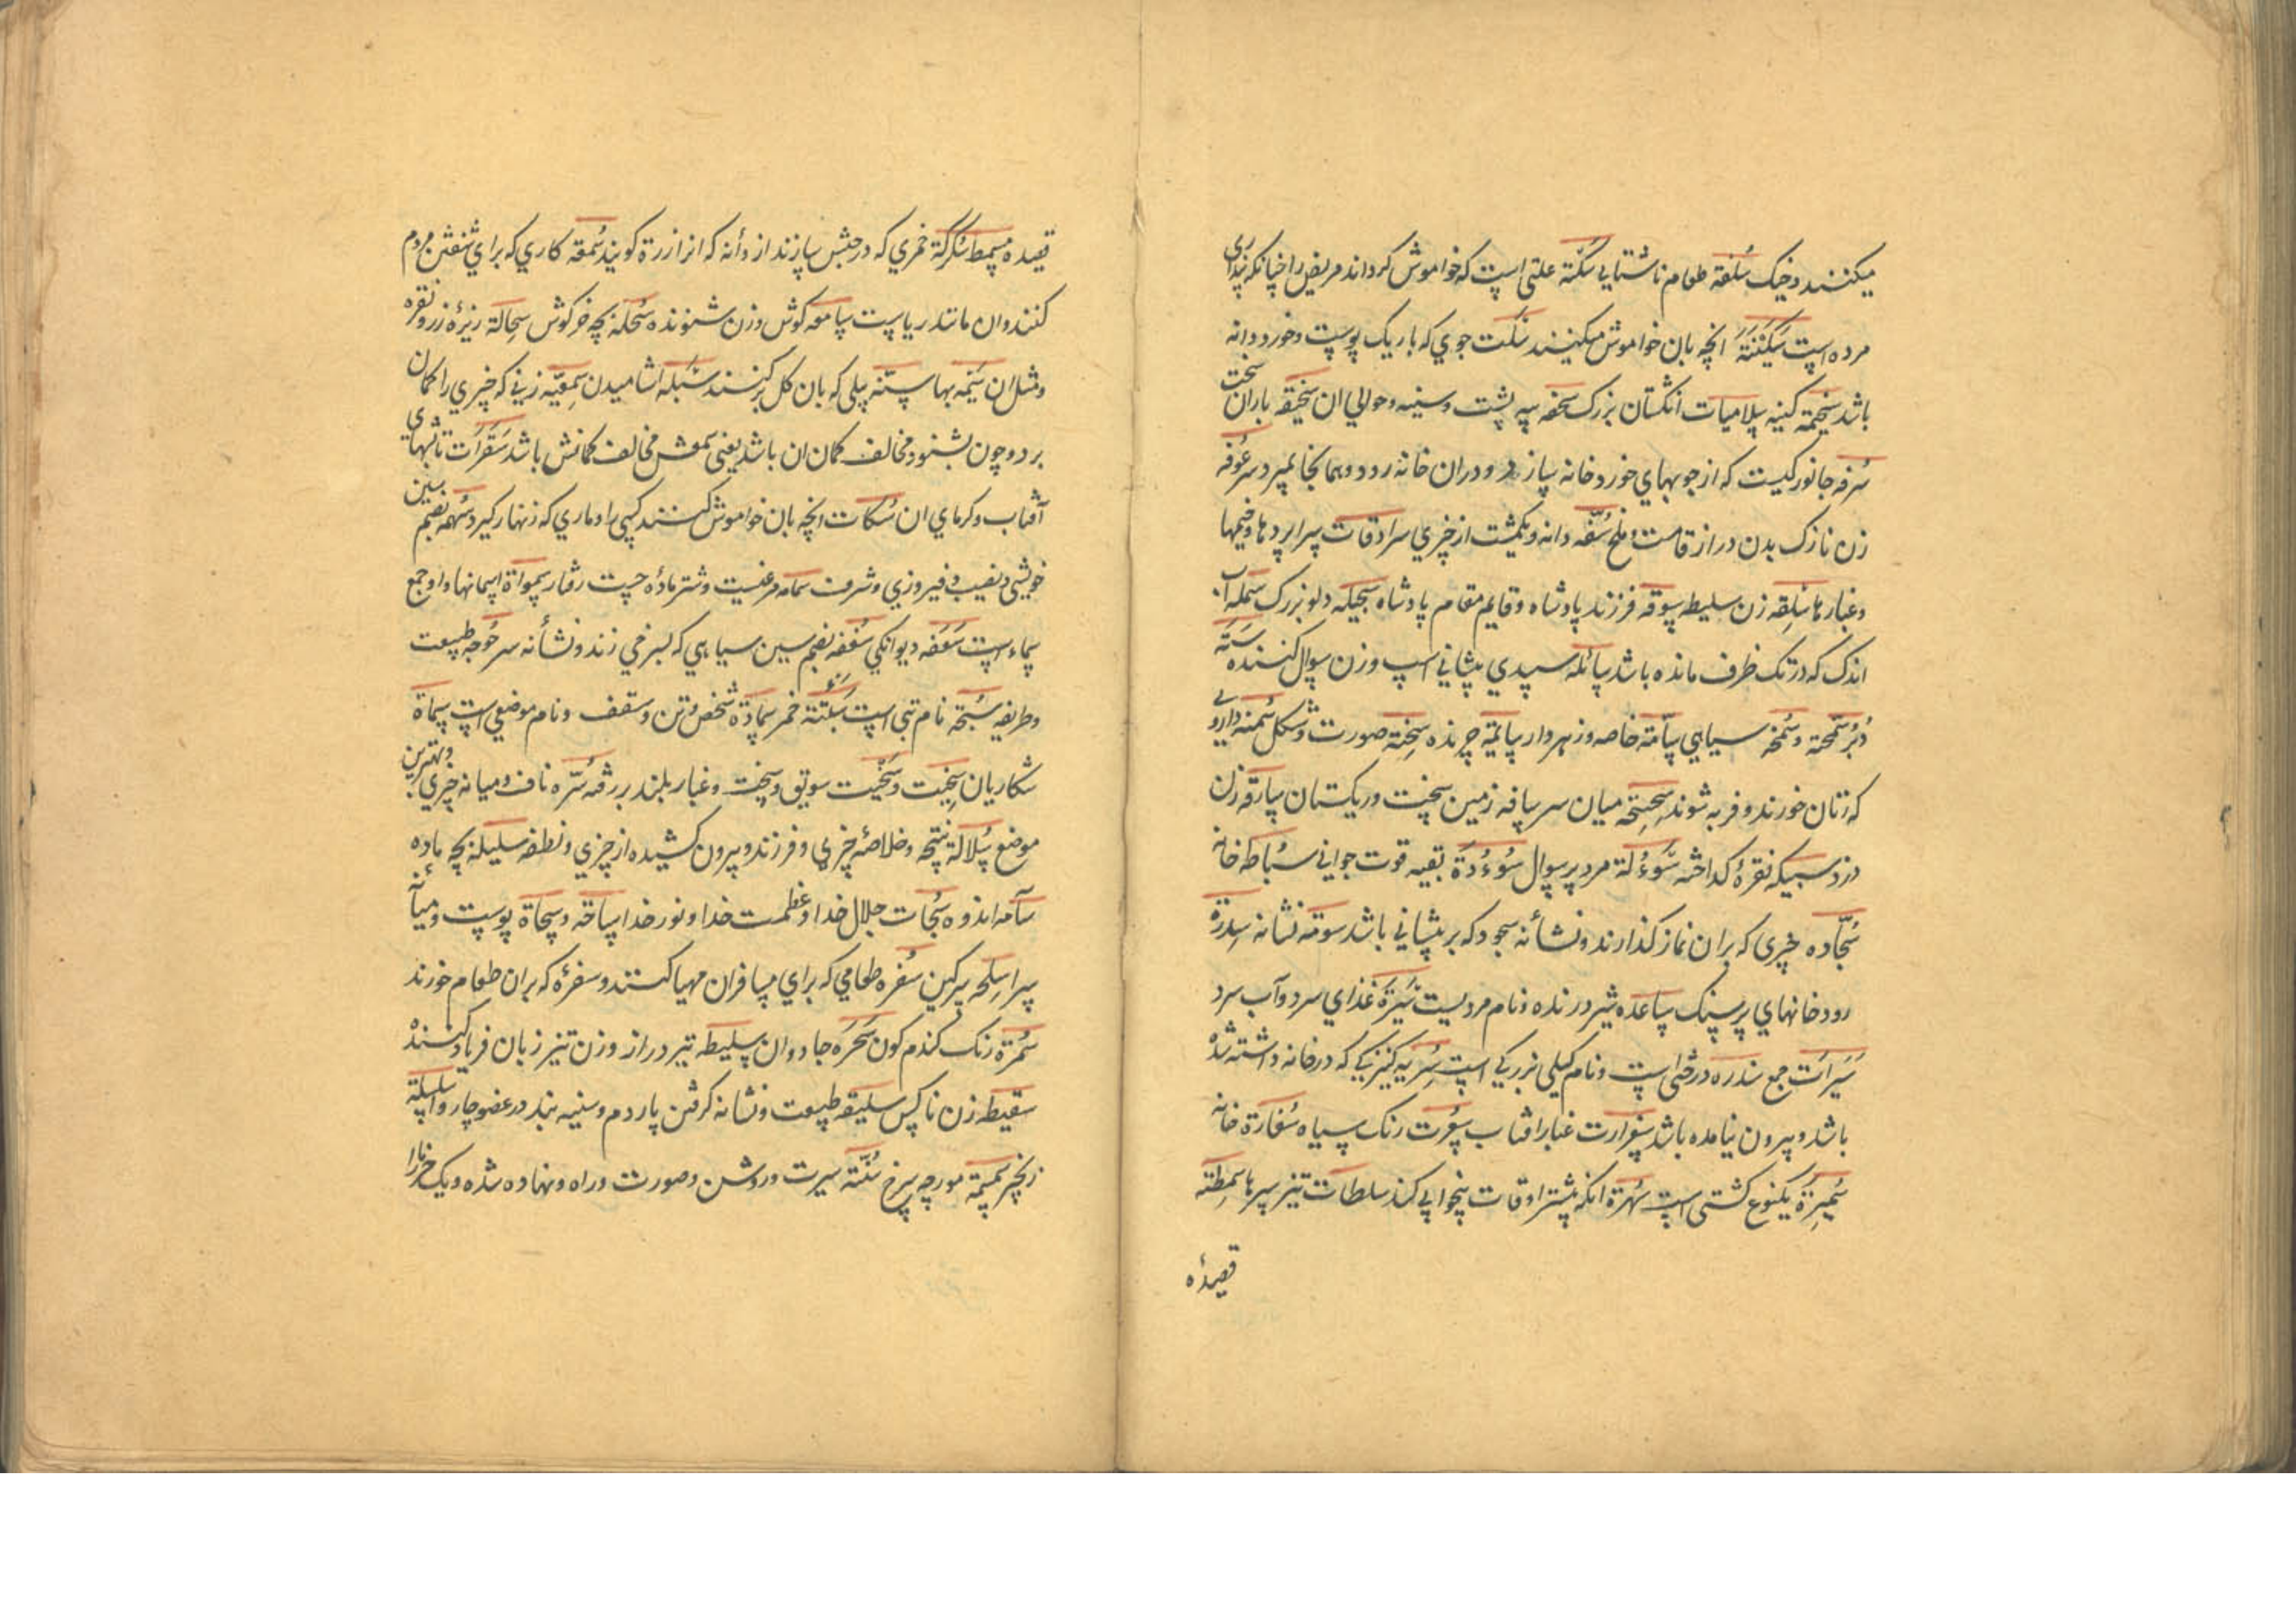 میکنند و خیک سُلفة طعام ناشتایی سکتة علتی است که خواموش کرداند مریض را چنانکه پنداری
مرده است سَکَنَتَة انچه بان خواموش میکنند سُلت جوی که باریک پوست و خورد و دانه
باشد سخیمة کینه سلامیات انکشتان بزرک سحفه پیه پشت و سینه و حوالی ان سحیقه باران سخت
سُرفه جانورکیست که از چوبهای خورد خانه سازد و دران خانه رود و همانجا بمیرد سرعُوفه
زن نازک بدن دراز قامت و ملخ سُفّه دانه و یکمشت از چیزی سرادقات سرا پردها و خیمها
و غبارها سَلِقه زن سلیطه سوقه فرزند پادشاه و قایم مقام پادشاه سجیله دلو بزرک سَمَله اب
اندک که در تک ظرف مانده باشد سائله سپیدی پیشانی اسپ و زن سوال کننده سَتَه
دُبُر سُحمة و سُخمه سیاهی سامّة خاصه و زهردار سائمة چرنده سِحنة صورت و شکل سُمنة داروئی
که زنان خورند و فربه شوند میان سر سافه زمین سخت و ریکستان سارقه زن
دزد سبیکه نقرهٔ کداخته سُوءلَة مرد پر سوال سُوءُدَة بقیه قوت جوانی سُباطه خانه
سُجّاده چیزی که بران نماز کذارند و نشأنه سجود که بر پیشانی باشد سومة نشانه سِدرَة
رودخانهای پر سنک ساعده شیر درنده و نام مردیست سَبَرة غذای سرد و آب سرد
سَبَرات جمع سدره درختی است و نام کیلی بزرکی است سُرِیّه کنیزیکی که در خانه داشته شده
باشد و بیرون نیامده باشد سفرارت غبار افتاب سعُرت رنک سیاه سُفارَة خانه
سُمیرَة یکنوع کشتی است سُهرَة انکه بیشتر اوقات بیخوابی کند سلطات تیز سیرها سِمطَة
قصیدهٔ
قصیده مسمط سُکرُکَة خمری که در حبش سازند از دأنه که انرا زرة کویند سُمعَة کاری که برای شنفتن مردم
کنند و ان مانند ریاست سامعه کوش و زن شنونده سُحَلة بچه خرکوش سحالة ریزهٔ زر و نقره
و مثل ان سیمه بها ستنه بیلی که بان کل برکنند سَبَله اشامیدن سِمعِیّه زنی که چیزی را کمان
برد و چون بشنود مخالف کمان ان باشد یعنی سمعش مخالف کمانش باشد سَقَرات تابشهای
آفتاب و کرمای ان سُکات انچه بان خواموش کنند کسی را و ماری که زنهار کیرد سُهمَه بضم سین
خویشی و نصیب و فیروزی و شرف سمامه مرغیست و شتر مادهٔ چست رفتار سمواة اسمانها و او جمع
سماء است سَعفَه دیوانکی سُعفَه بضم سین سیاهی که بسرخی زند و نشأنه سرحوجه طبیعت
و طریقه سبَحة نام تبی است سَبَنّة خمر سَمادَة شخص و تن و سقف و نام موضعی است سماة
شکاریان سِخّیت و سَخّیت سویق و سخت و غبار بلند بر رفته سُرّه ناف و میانه چیزی و بهترین
موضع سُلالَة نتیجه و خلاصهٔ چیزی و فرزند و بیرون کشیده از چیزی و نطفه سلیله بچه ماده
سآمه اندوه سُبُحات جلال خدا و عظمت خدا و نور خدا ساحَة و سَحاة پوست و میأنه
سرا سِلحَه سرکین سُفره طعامی که برای مسافران مهیا کنند و سفرهٔ که بران طعام خورند
سُمرَة رنک کندم کون سَحَرَه جادوان سلیطه تیر دراز و زن تیز زبان فریاد کننده
سقیط زن ناکس سلیقه طبیعت و نشانه کرفتن پاردم و سینه بند در عضو چاروا سِلسِلَة
زنجیر سمسمَة مورچه سرخ سُنّة سیرت و روشن و صورت و راه و نهاده شده و یک خرما را